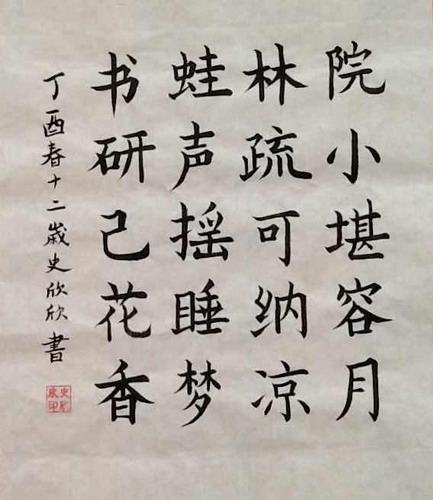 院小堪容月
林疏可纳凉
蛙声摇睡梦
书研己花香
丁酉春十二岁史欣欣書
史欣欣印